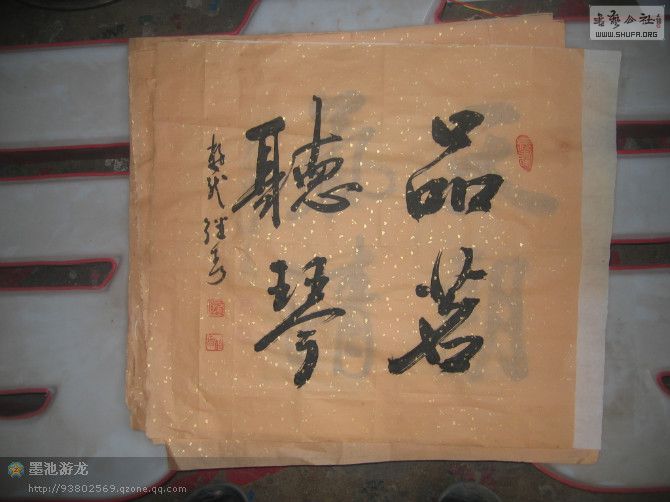 品茗
聽琴
書藝公社
WWW.SHUFA.ORG
墨池游龙
http://93802569.qzone.qq.com